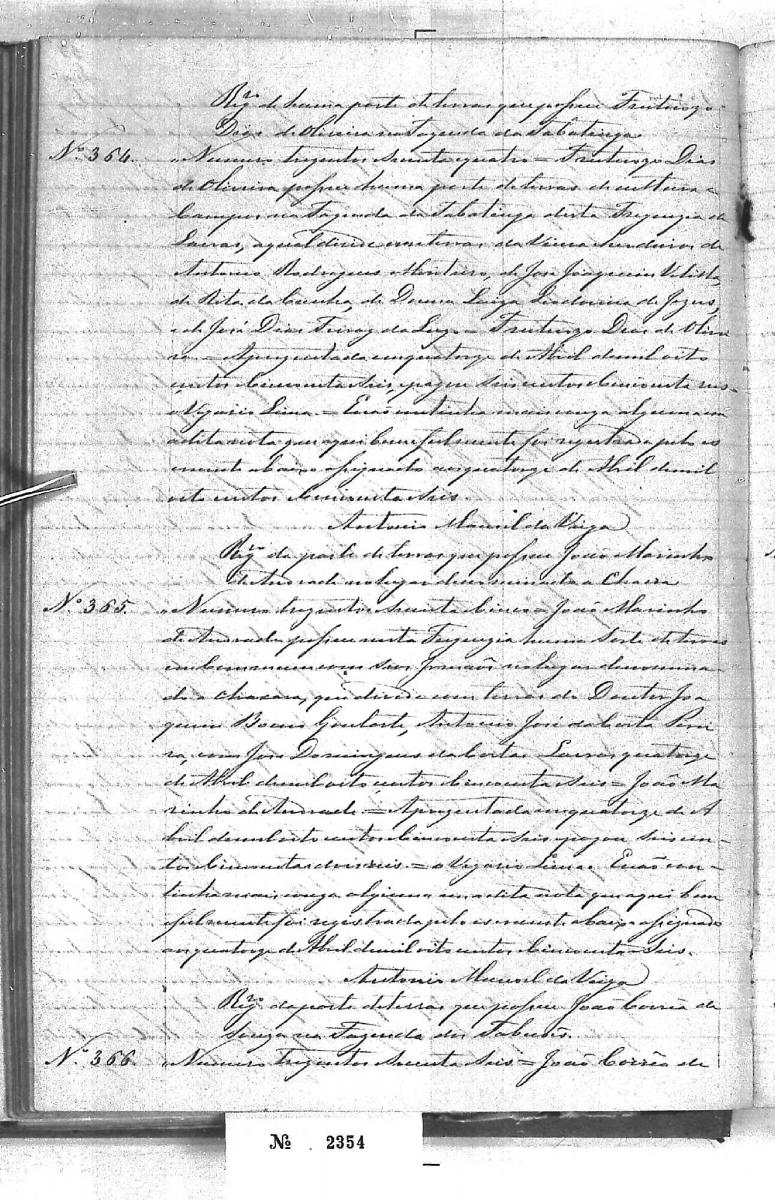 Regro de huma parte de terras que possue Frutuozo
Dias de Oliveira na Fazenda da Tabatinga
No. 364. "Numero trezentos secenta quatro = Frutuozo Dias
de Oliveira possue huma parte de terras de cultura e
Campos na Fazenda da Tabatinga desta Freguezia de
Lavras, a qual devide com terras da Viuva herdeiros de
Antonio Rodrigues Monteiro, de Jose Joaquim
de Rita da Cunha, de Donna Luiza Ludovina de Jezus,
e de José Dias Ferraz da Luz = Frutuozo Dias de Olivei
ra = Aprezentada em quatorze de Abril de mil oito
centos e cincoenta seis, pagou seis centos e cincoenta reis
o Vigario Lima. = E não continha mais couza alguma em
a dita nota que aqui bem e fielmente foi registrada pelo es
crevente abaixo assignado aos quatorze de Abril de mil
oito centos e cincoenta seis.
Antonio Manoel da Veiga
Regro da parte de terras que possue João Marinho
de Andrade no lugar denominado a Chacra
No. 365. "Numero trezentos secenta cinco = João Marinho
de Andrade possue nesta Freguezia huma sorte de terras
em commum com seos Irmaõs no lugar denomina
do a chacara, que devide com terras do Doutor Joa
quim Goularte, Antonio José da Costa Perei
ra, com Jose Domingues da Costa = Lavras quatorze
de Abril de mil oito centos e cincoenta seis = João Ma
rinho de Andrade = Aprezentada em quatorze de A
bril de mil oito centos e cincoenta seis e pagou seis cen
tos e cincoenta e dois reis = o Vigario Lima. E não con-
tinha mais couza alguma em a dita nota que aqui bem
fielmente foi registrada pelo escrevente abaixo assignado
aos quatorze de Abril de mil oito centos e cincoenta Seis.
Antonio Manoel da Veiga
Regro da parte de terras que possue João Corrêa de
Souza na Fazenda dos
No. 366. "Numero trezentos secenta Seis = João Corrêa de
No 2354